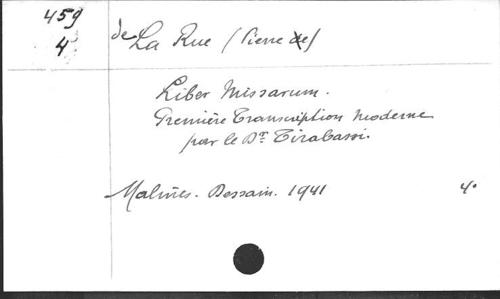 459
4
de La Rue (Pierre de)
Liber Missarum.
Première Transcription Moderne
par le Dr. Tirabassi.
Malines. Dessain. 1941 4°